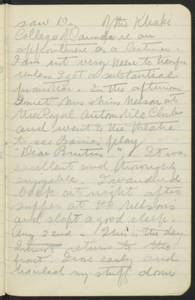 saw Dr. of the Khaki
College, Daunda re an
appointment as a lecturer.
I am not very keen to keep
unless I get a substantial
promotion. In the afternoon
I met Mrs. Nelson at
the Royal Automobile Club
and went to the
to see
"Dear Brutus". It was
excellent and thoroughly
enjoyable. I
back at night after
supper at the Nelsons
and slept a good sleep.
Aug 22nd - This is the day
I return to the
front. I rose early and
hauled my stuff down